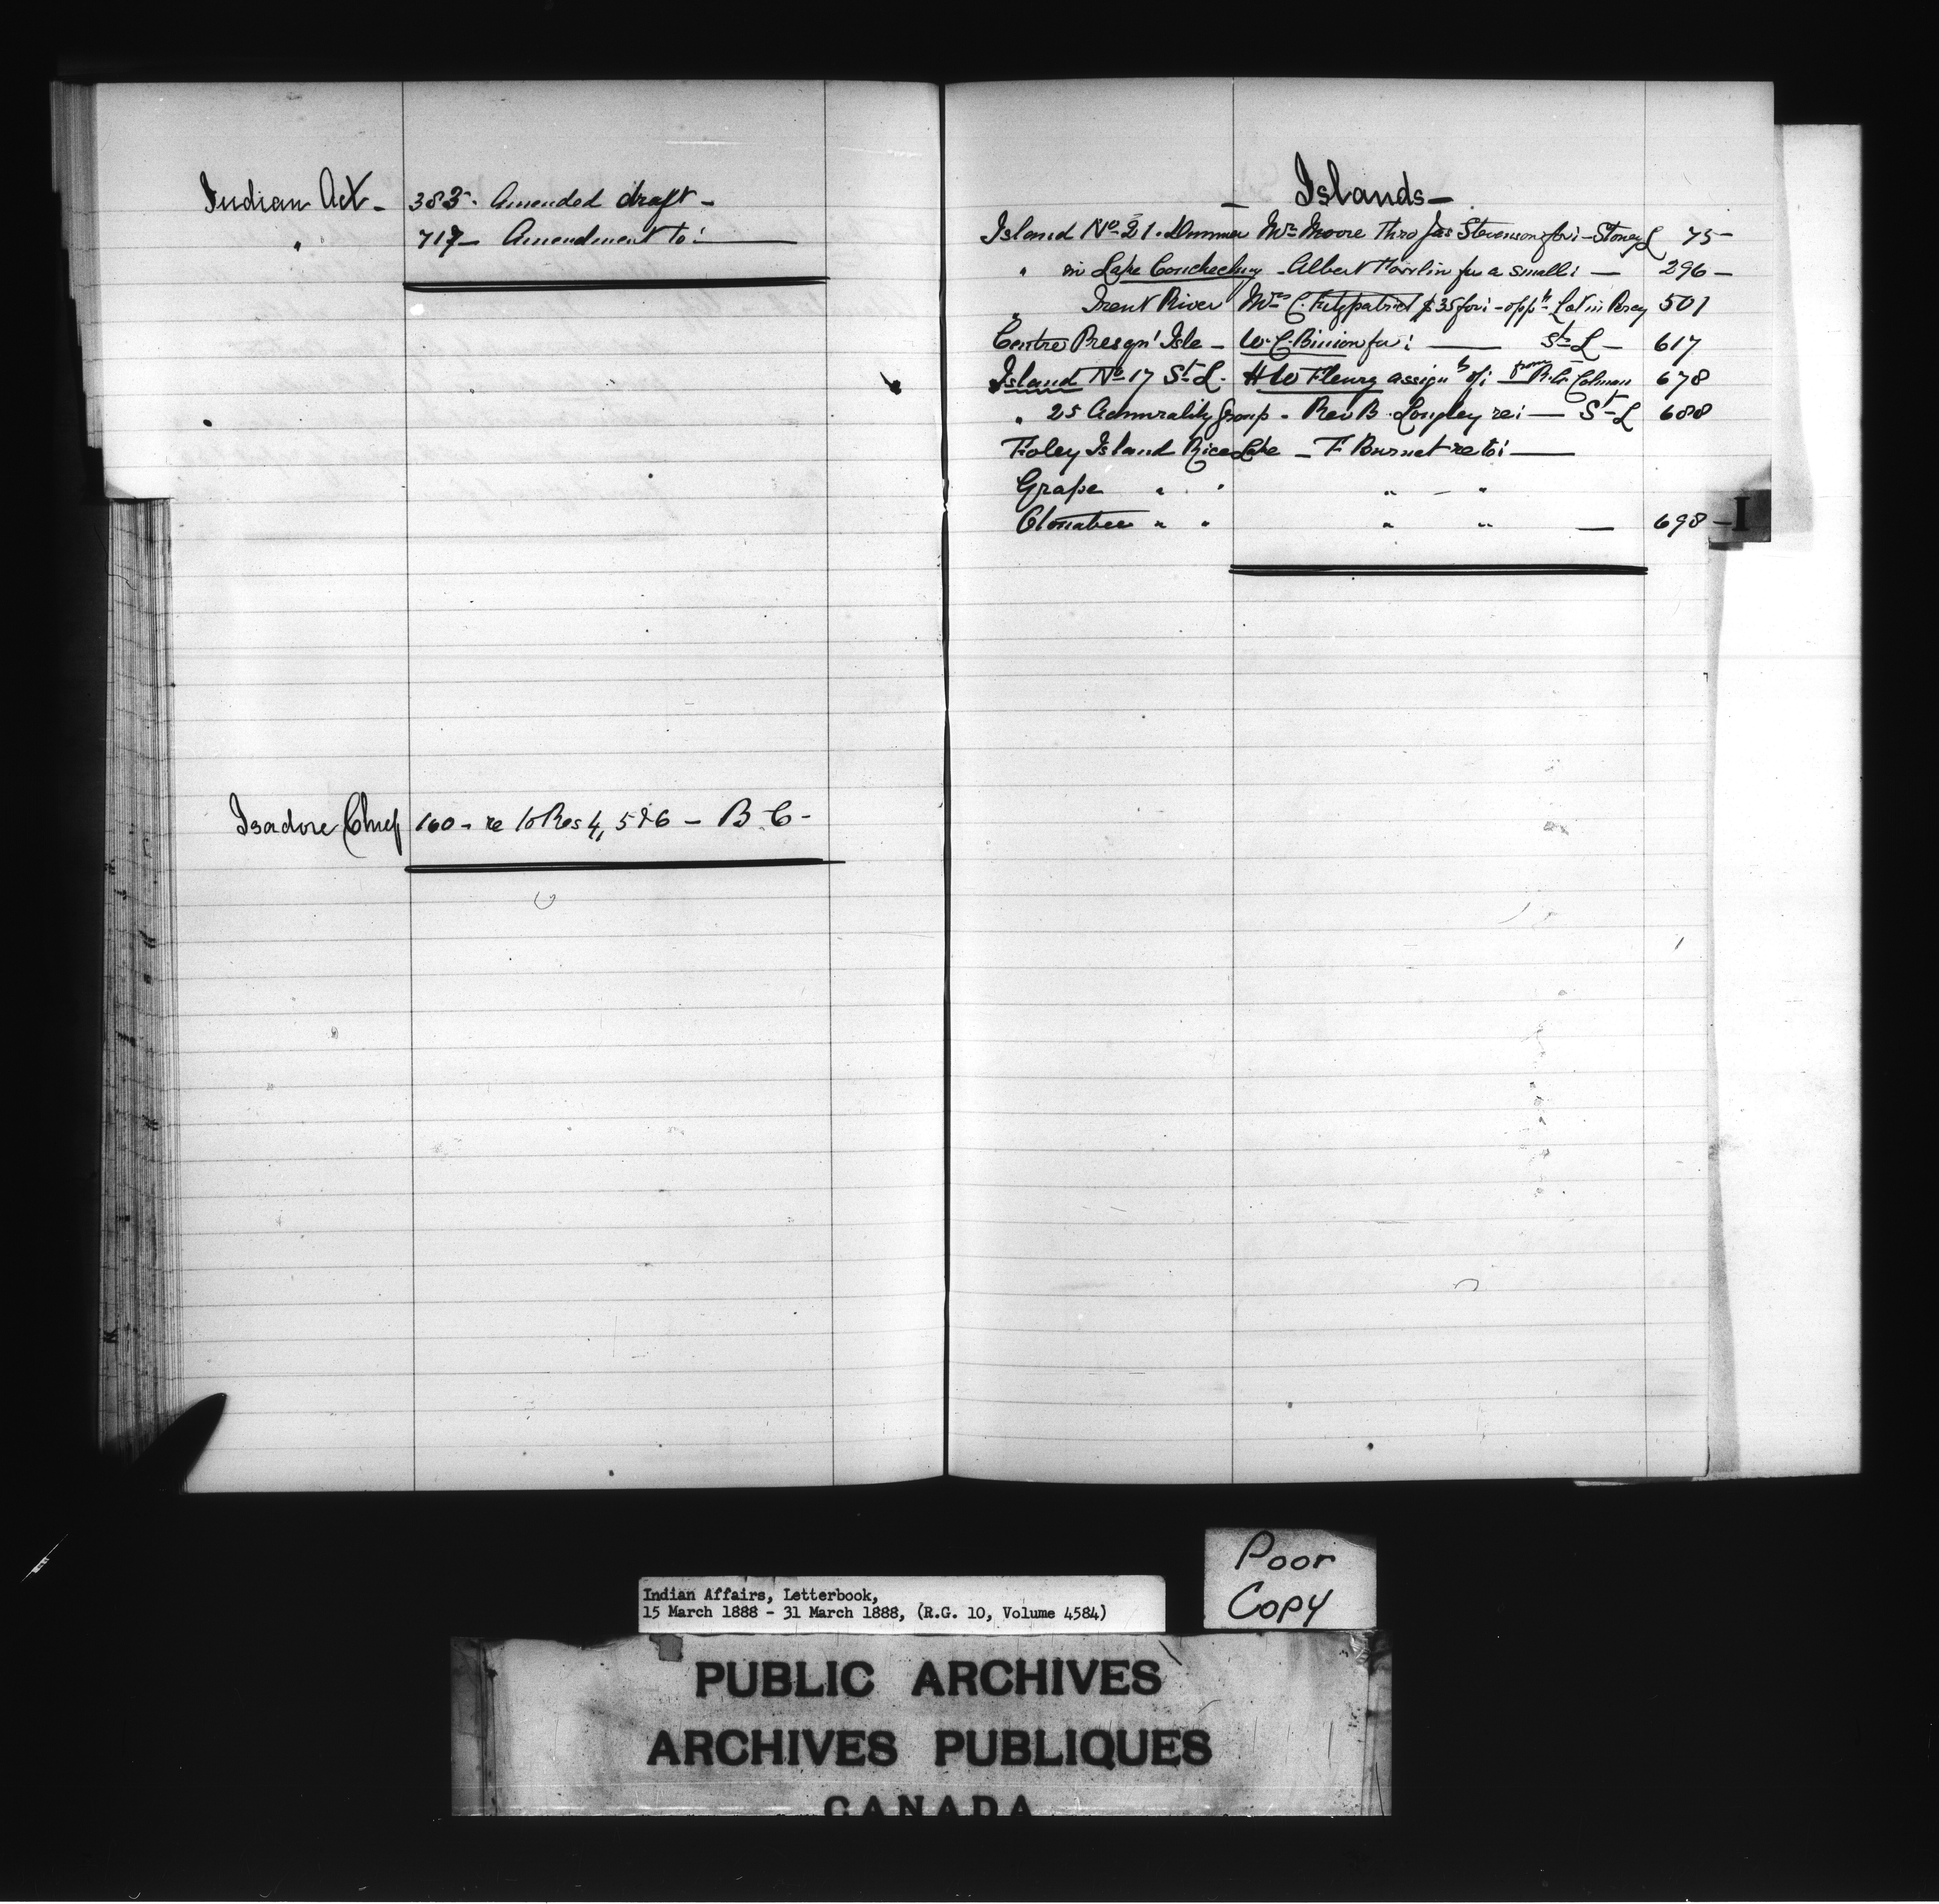 Indian Act - 383 - Amended draft -
" 717 - Amendment to: —
Isadore Chief 160 - re to Res 4, 5 & 6 - B. C -
- Islands -
Island No 21 - Dummer Mrs Moore Thro Jas Stevenson for i - Stoney L 75 -
" in Lake Couchiching - Albert for a small i — 296 -
" Trent River Mrs C. Fitzpatrick $35 for i - opph Lot in Percy 501
Centre Presqu' Isle - W. C. Binion for i — St L - 617
Island No 17 St L. H W Fleury assignt of i from Colman 678
" 25 Admirality Group - Rev B. Longley re i — St L 688
Foley Island Rice Lake - F Burnet re to i —
Grape " " " - "
" " " " — 698 -
I
Poor
Copy
Indian Affairs, Letterbook,
15 March 1888 - 31 March 1888, (R.G. 10, Volume 4584)
PUBLIC ARCHIVES
ARCHIVES PUBLIQUES
CANADA